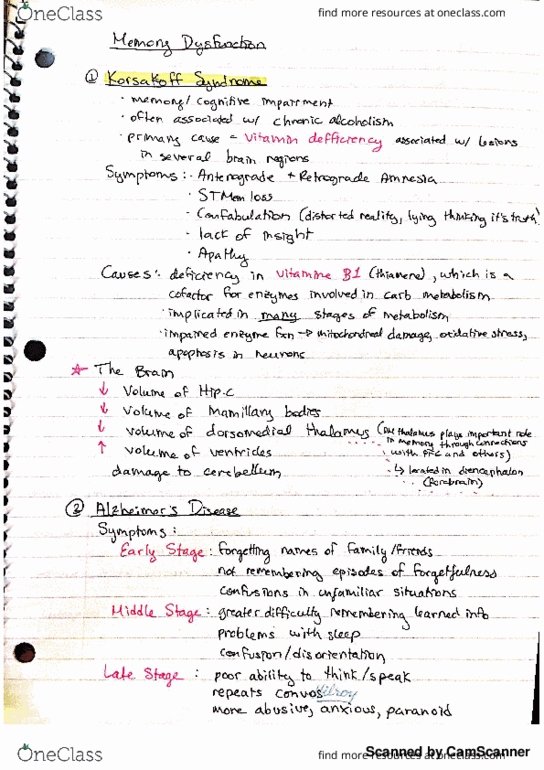 OneClass
find more resources at oneclass.com
Memory Dysfunction
① Korsakoff Syndrome
· memory/cognitive impairment
· often associated w/ chronic alcoholism
· primary cause = vitamin defficiency associated w/ lesions
in several brain regions
Symptoms: · Anterograde + Retrograde Amnesia
· STMem loss
· Confabulation (distorted reality, lying thinking it's truth)
· lack of insight
· Apathy
Causes: deficiency in vitamine B1 (thiamene), which is a
cofactor for enzymes involved in carb metabolism
· implicated in many stages of metabolism
· impaired enzyme fxn → mitochondreal damage, oxidative stress,
apoptosis in neurons
☆ The Brain
↓ Volume of Hip.c
↓ Volume of Mamillary bodies
↓ volume of dorsomedial thalamus (the thalamus plays important role
in memory through connections
↑ volume of ventricles with PFC and others)
damage to cerebellum ↳ located in diencephalon
(forebrain)
② Alzheimer's Disease
Symptoms:
Early Stage: forgetting names of family/friends
not remembering episodes of forgetfulness
confusions in unfamiliar situations
Middle Stage: greater difficulty remembering learned info
problems with sleep
confusion/disorientation
Late Stage: poor ability to think/speak
repeats convos
Hilroy
more abusive, anxious, paranoid
OneClass
find more resources at oneclass.com
Scanned by CamScanner